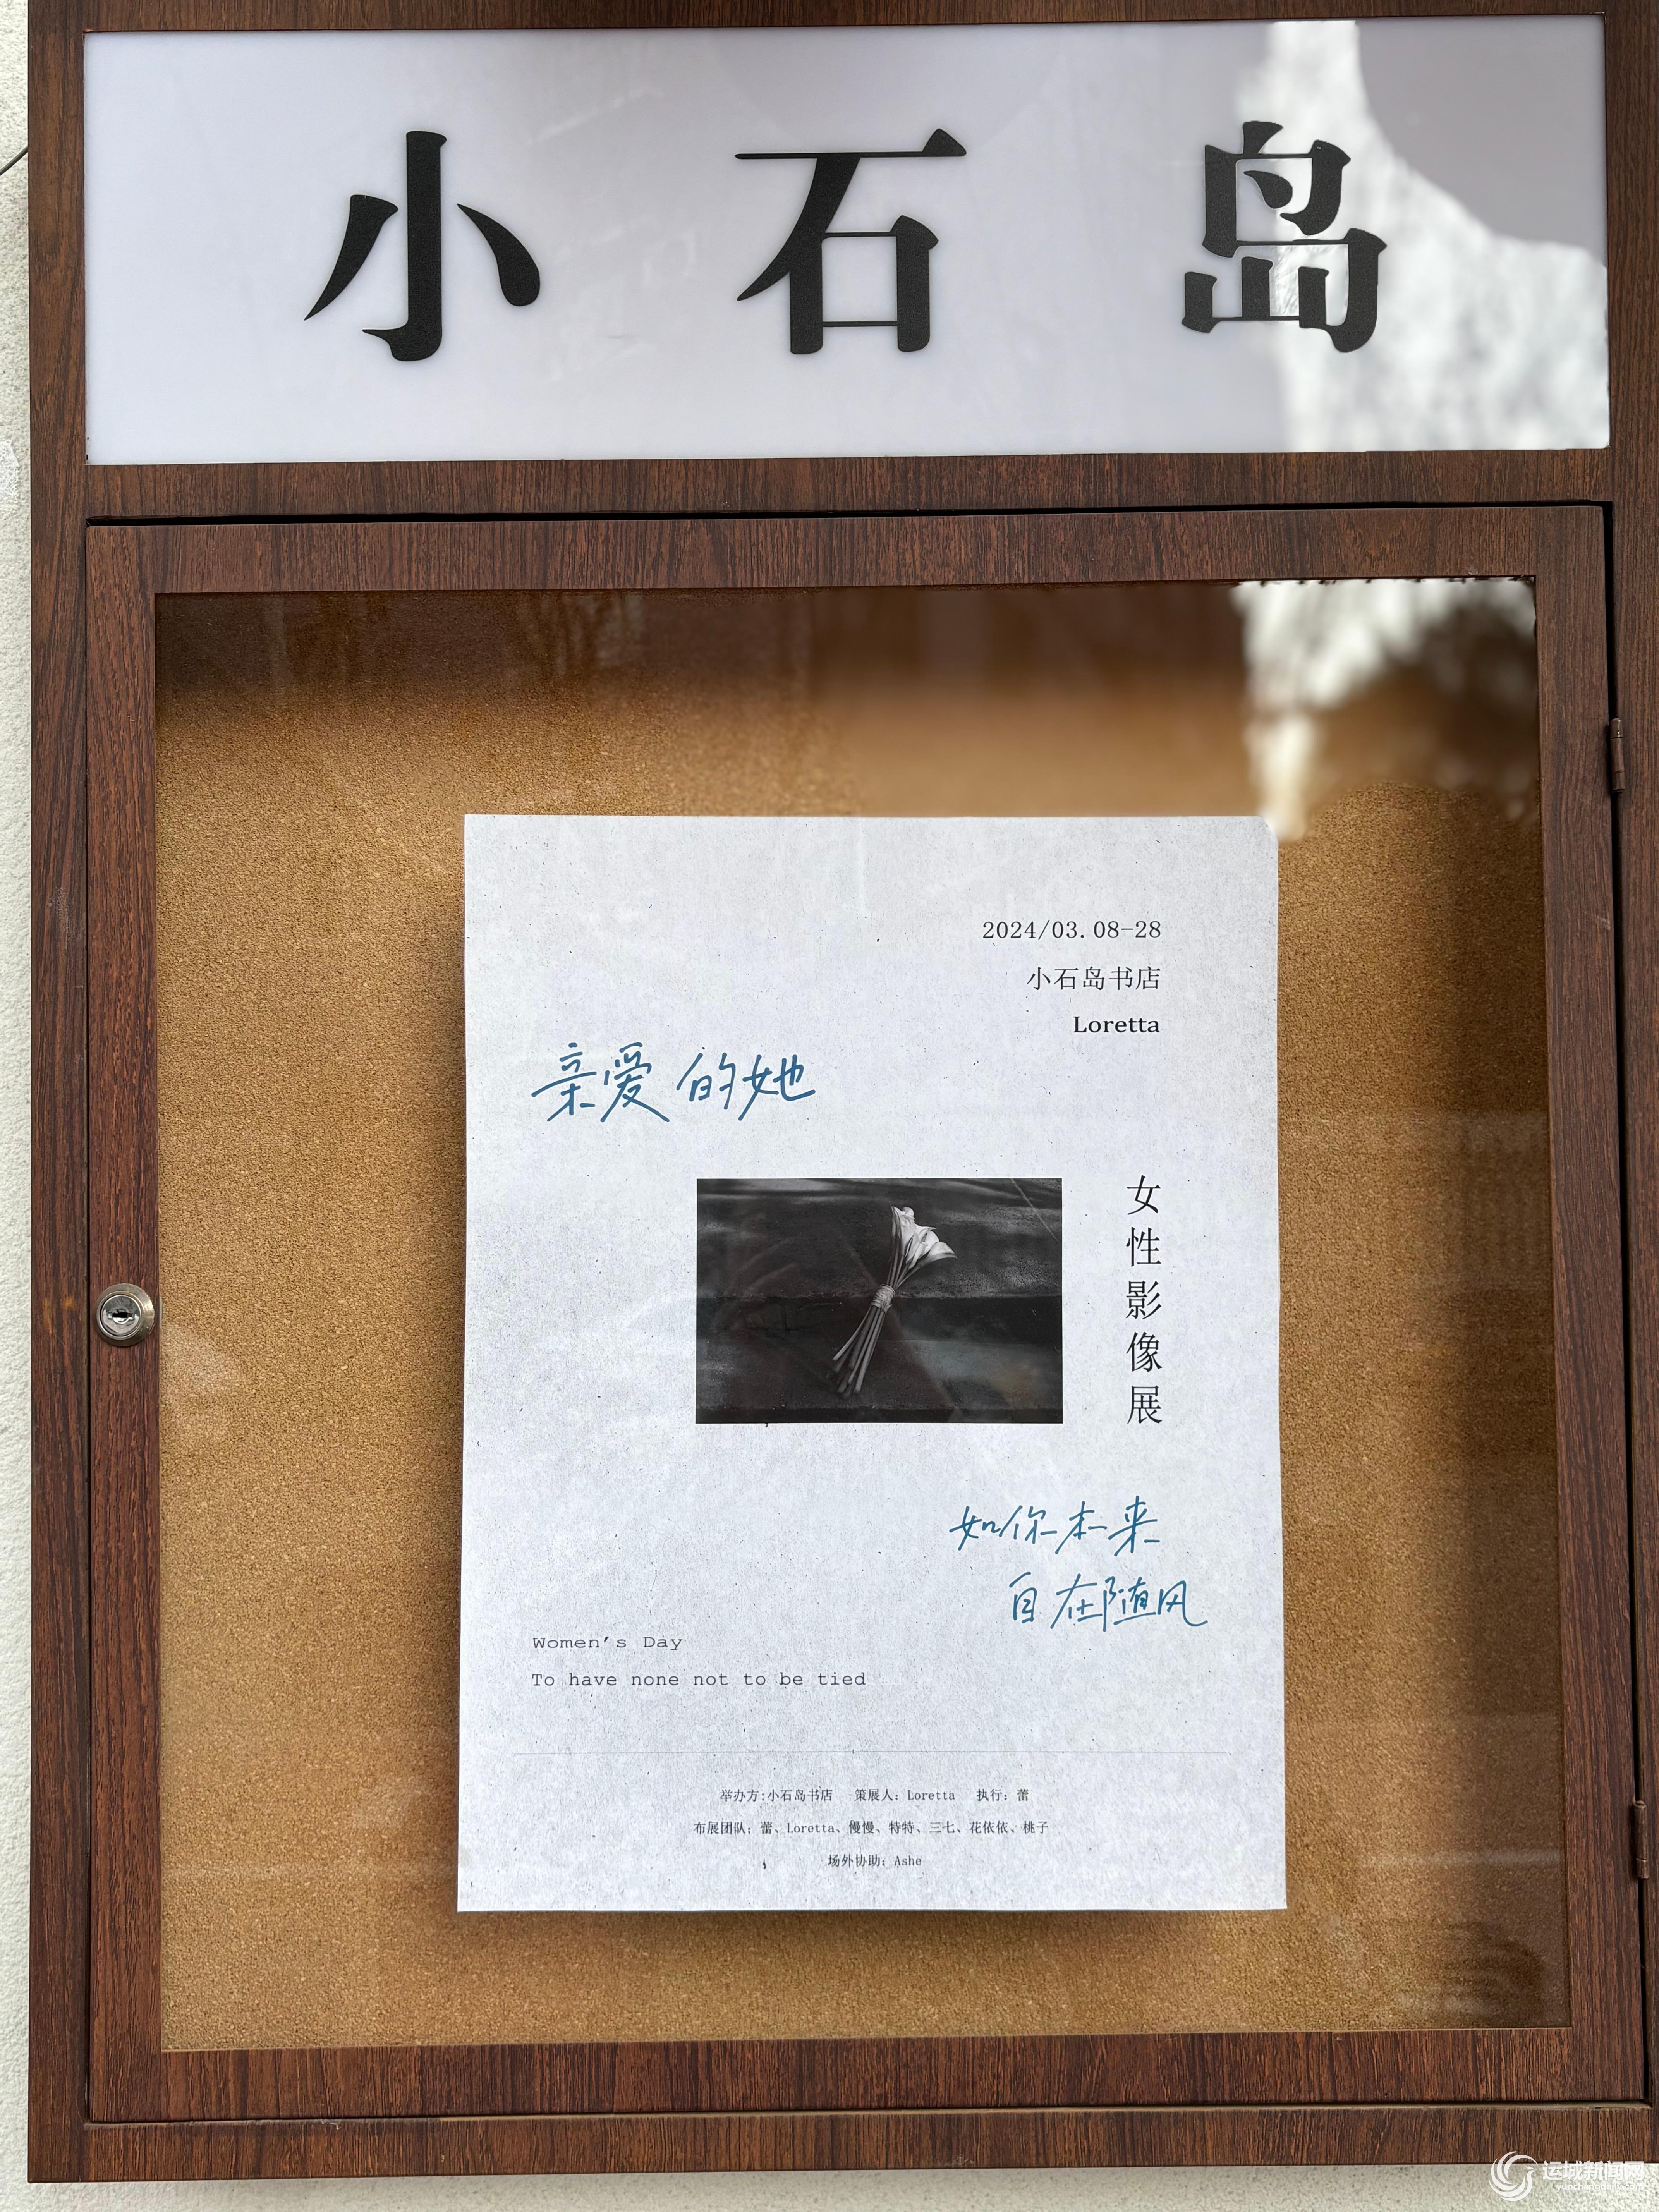 小石岛
2024/03.08-28
小石岛书店
Loretta
亲爱的她
女性影像展
如你本来
自在随风
Women's Day
To have none not to be tied
举办方:小石岛书店 策展人: Loretta 执行: 蕾
布展团队: 蕾、Loretta、慢慢、特特、三七、花依依、桃子
场外协助: Ashe
运城新闻网